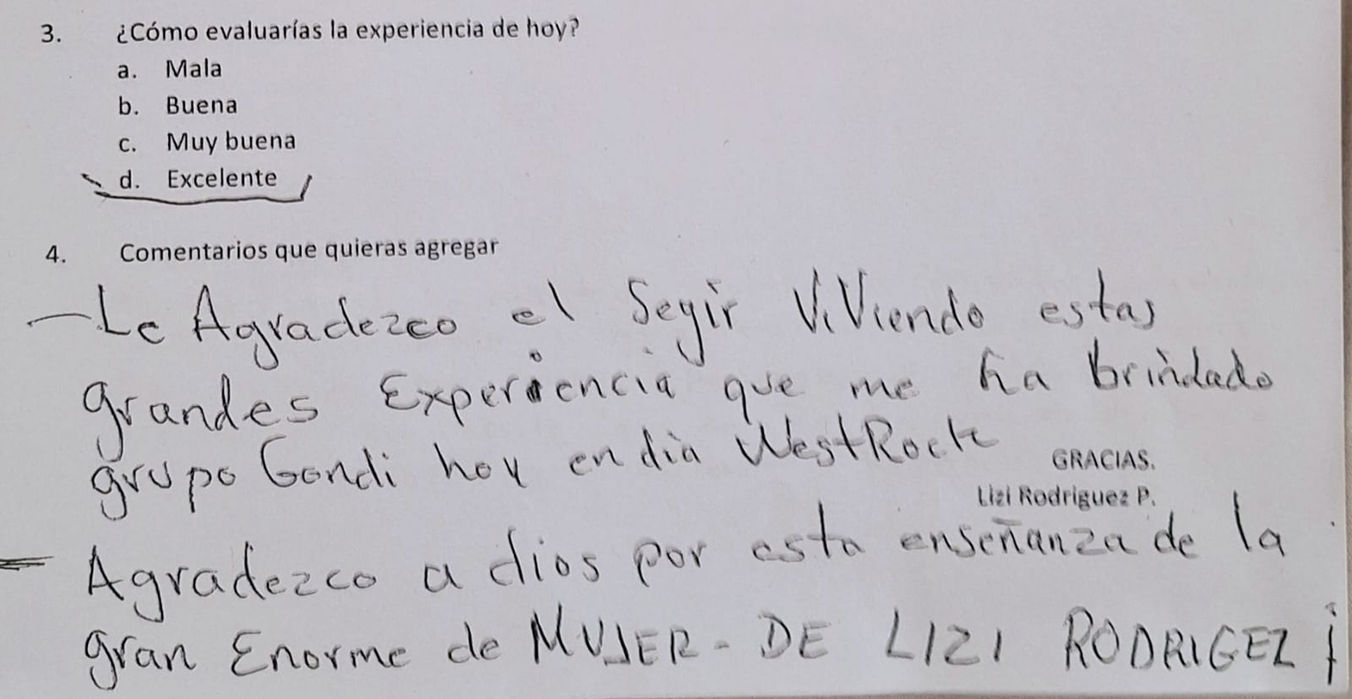 3. ¿Cómo evaluarías la experiencia de hoy?
a. Mala
b. Buena
c. Muy buena
d. Excelente
4. Comentarios que quieras agregar
- Le Agradezco el Segir ViViendo estas
grandes Experiencia que me ha brindado
grupo Gondi hoy en dia WestRock
GRACIAS.
Lizi Rodriguez P.
- Agradezco a dios por esta enseñanza de la
gran Enorme de MUJER - DE LIZI RODRIGEZ ¡